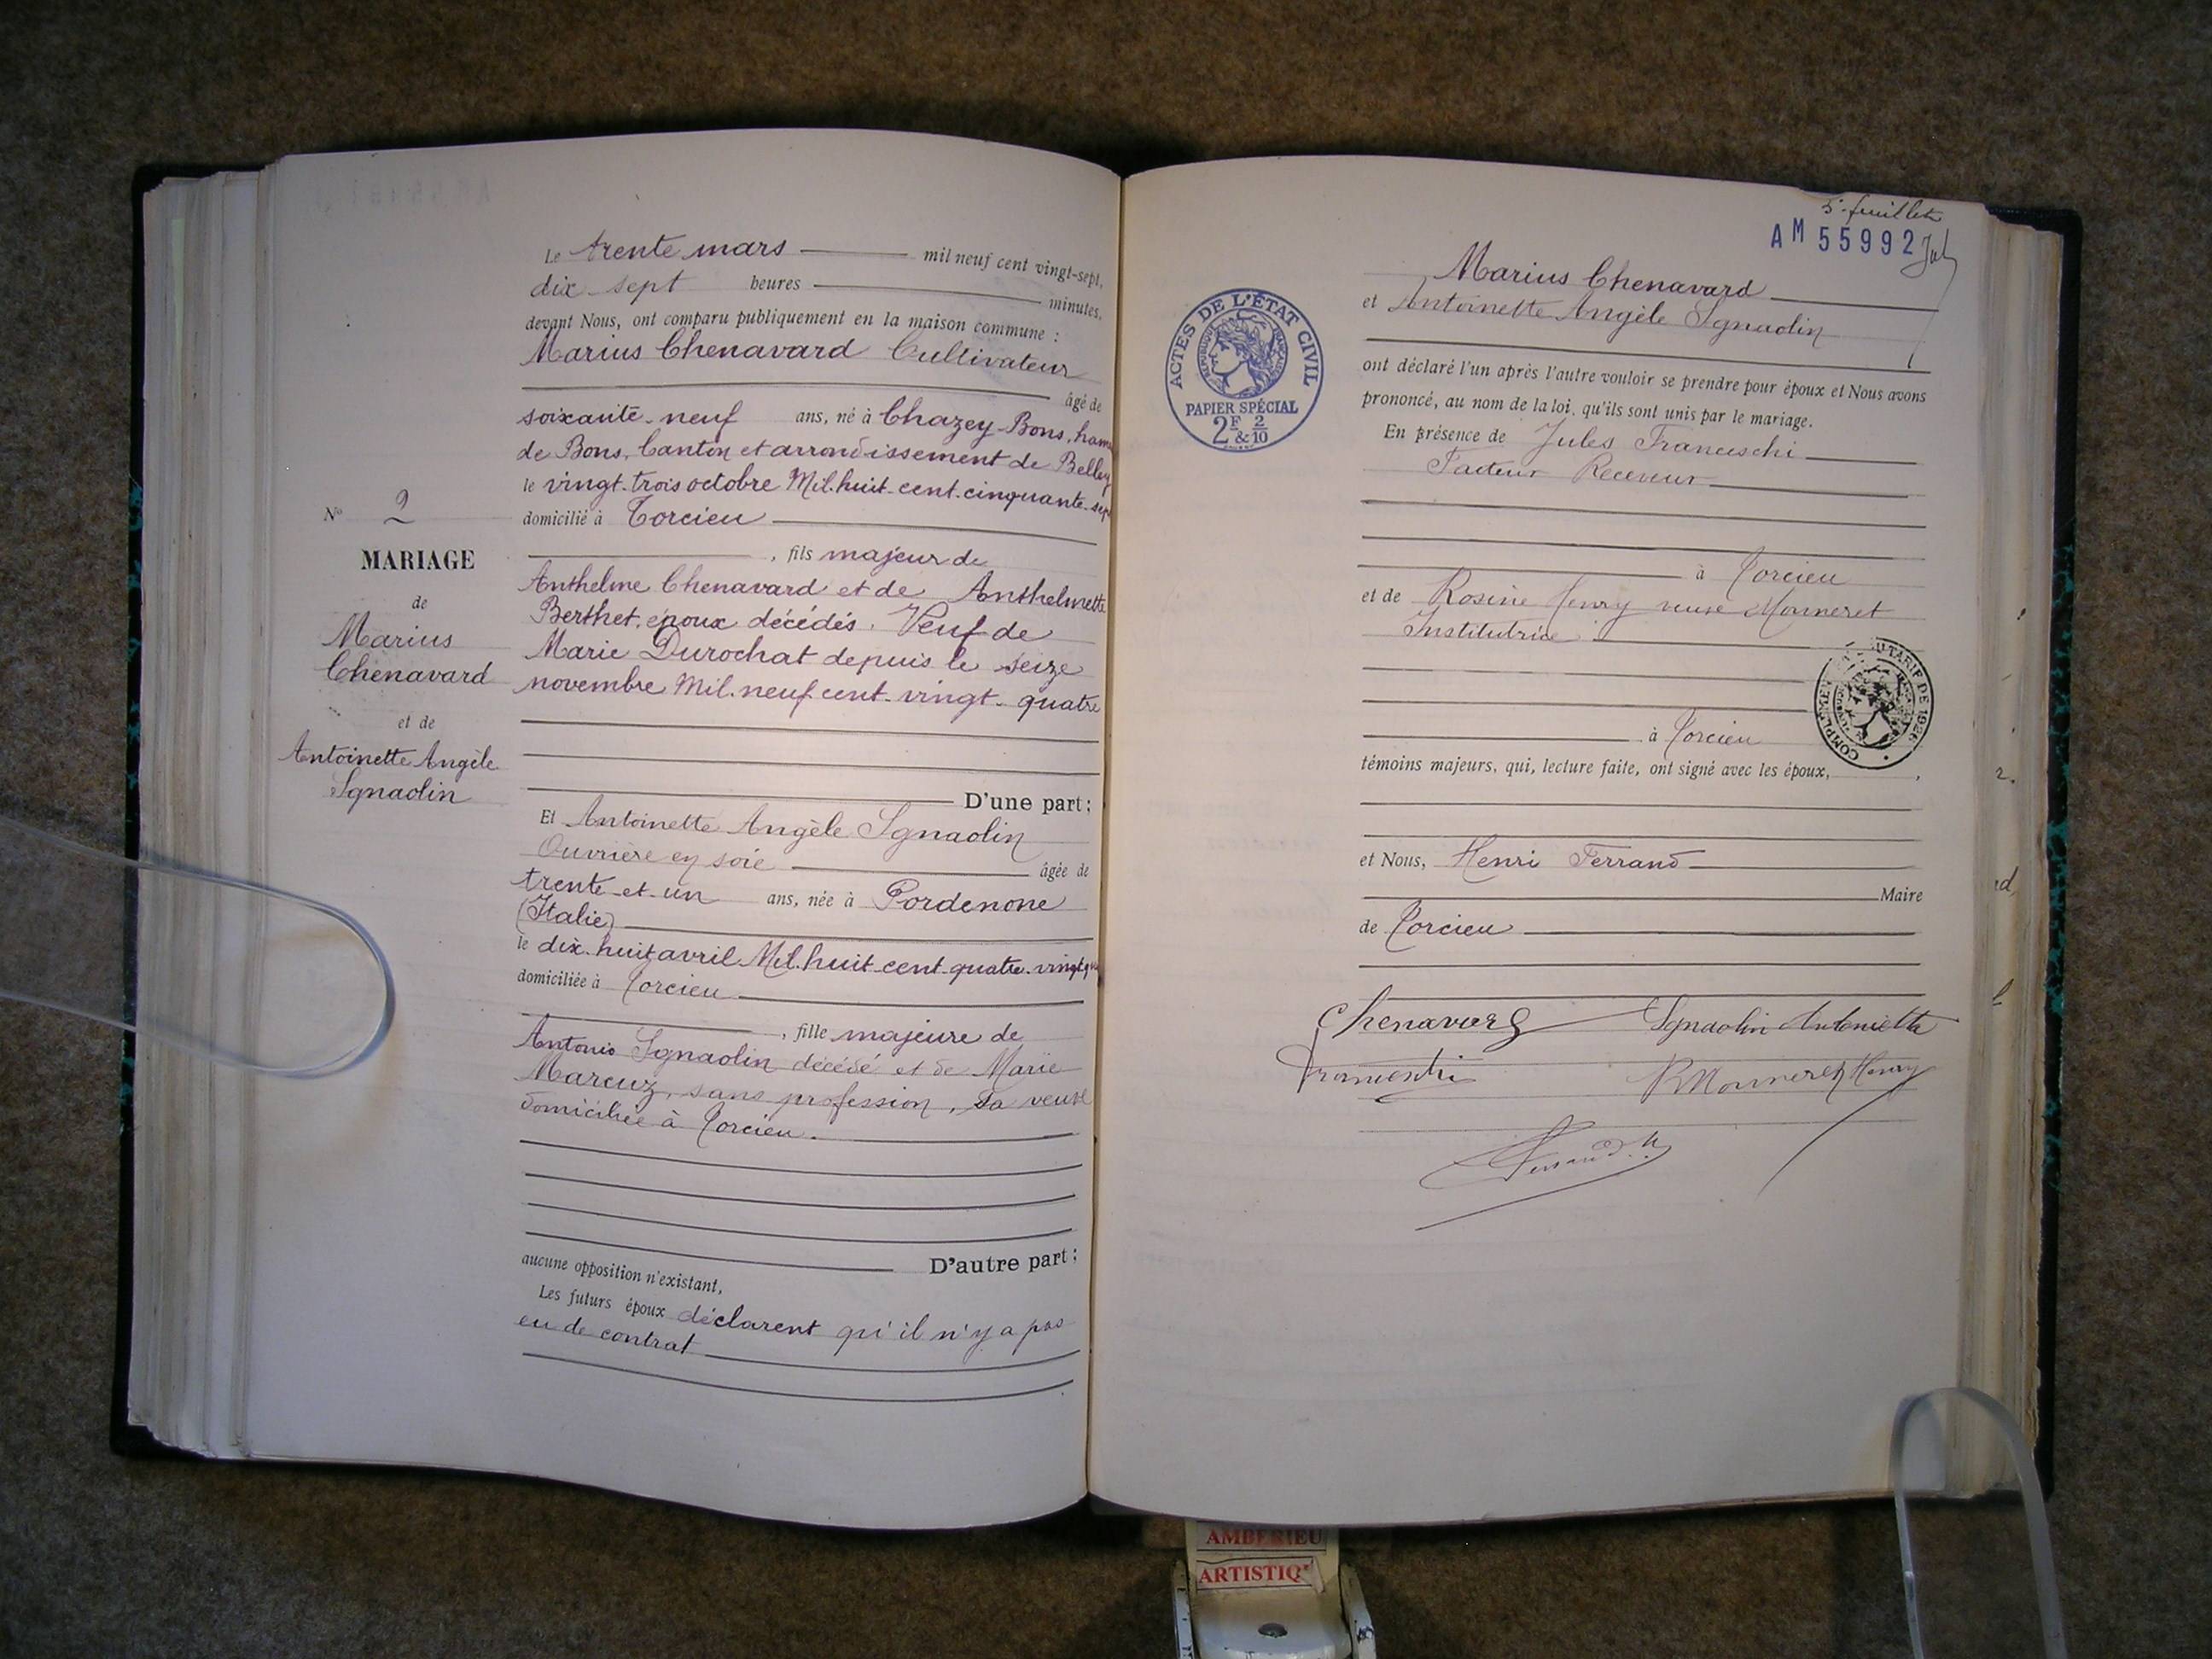 Le trente mars mil neuf cent vingt-sept,
dix sept heures minutes,
devant Nous, ont comparu publiquement en la maison commune :
Marius Chenavard Cultivateur
âgé de
soixante-neuf ans, né à Chazey-Bons, ham
de Bons, Canton et arrondissement de Belley
le vingt-trois octobre Mil-huit-cent-cinquante-sep
domicilié à Torcieu
, fils majeur de
Anthelme Chenavard et de Anthelmette
Berthet, époux décédés. Veuf de
Marie Durochat depuis le seize
novembre Mil-neuf-cent-vingt-quatre
D'une part ;
Et Antoinette Angèle Sgnaolin
Ouvrière en soie âgée de
trente-et-un ans, née à Pordenone
(Italie)
le dix-huit avril Mil-huit-cent-quatre-vingt
domiciliée à Torcieu
, fille majeure de
Antonio Sgnaolin décédé et de Marie
Marcuz, sans profession, sa veuve
domiciliée à Torcieu.
D'autre part ;
aucune opposition n'existant,
Les futurs époux déclarent qu'il n'y a pas
eu de contrat
No 2
MARIAGE
de
Marius
Chenavard
et de
Antoinette Angèle
Sgnaolin
5e feuillet
AM 55992
ACTES DE L'ÉTAT CIVIL
RÉPUBLIQUE FRANÇAISE
PAPIER SPÉCIAL
2F & 2/10
Marius Chenavard
et Antoinette Angèle Sgnaolin
ont déclaré l'un après l'autre vouloir se prendre pour époux et Nous avons
prononcé, au nom de la loi, qu'ils sont unis par le mariage.
En présence de Jules Franceschi
Facteur Receveur
à Torcieu
et de Rosine Henry veuve Monneret
Institutrice
COMPLÉMENT DU TARIF DE 1926
à Torcieu
témoins majeurs, qui, lecture faite, ont signé avec les époux,
et Nous, Henri Ferrand
Maire
de Torcieu
Chenavard Sgnaolin Antonietta
Franceschi R Monneret Henry
Ferrand H
AMBERIEU
ARTISTIQ